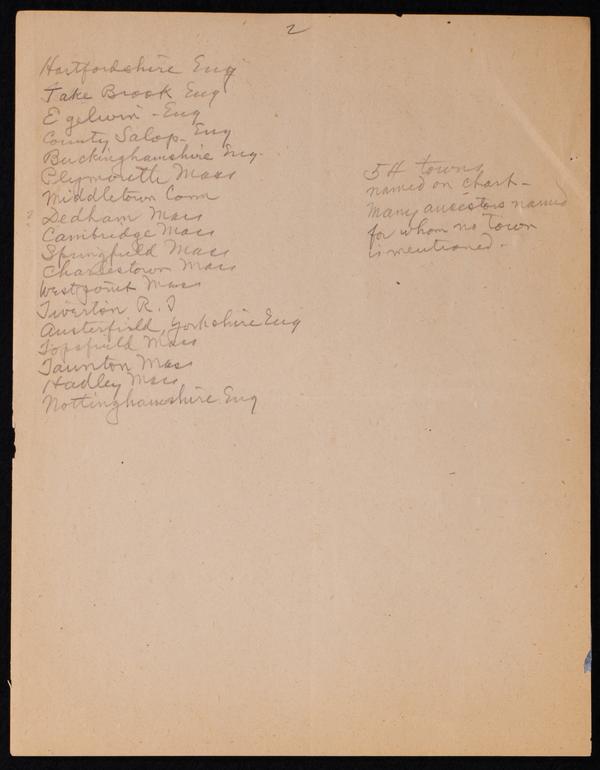 2
Hartfordshire Eng
Take Brook Eng
Egelwin - Eng
County Salop - Eng
Buckinghamshire Eng.
Plymouth Mass
Middletown Conn
? Dedham Mass
Cambridge Mass
Springfield Mass
Charlestown Mass
Westpoint Mass
Tiverton R.I
Austerfield, Yorkshire Eng
Topsfield Mass
Taunton Mass
Hadley Mass
Nottinghamshire Eng
54 towns
named on chart -
Many ancestors named
for whom no town
is mentioned -